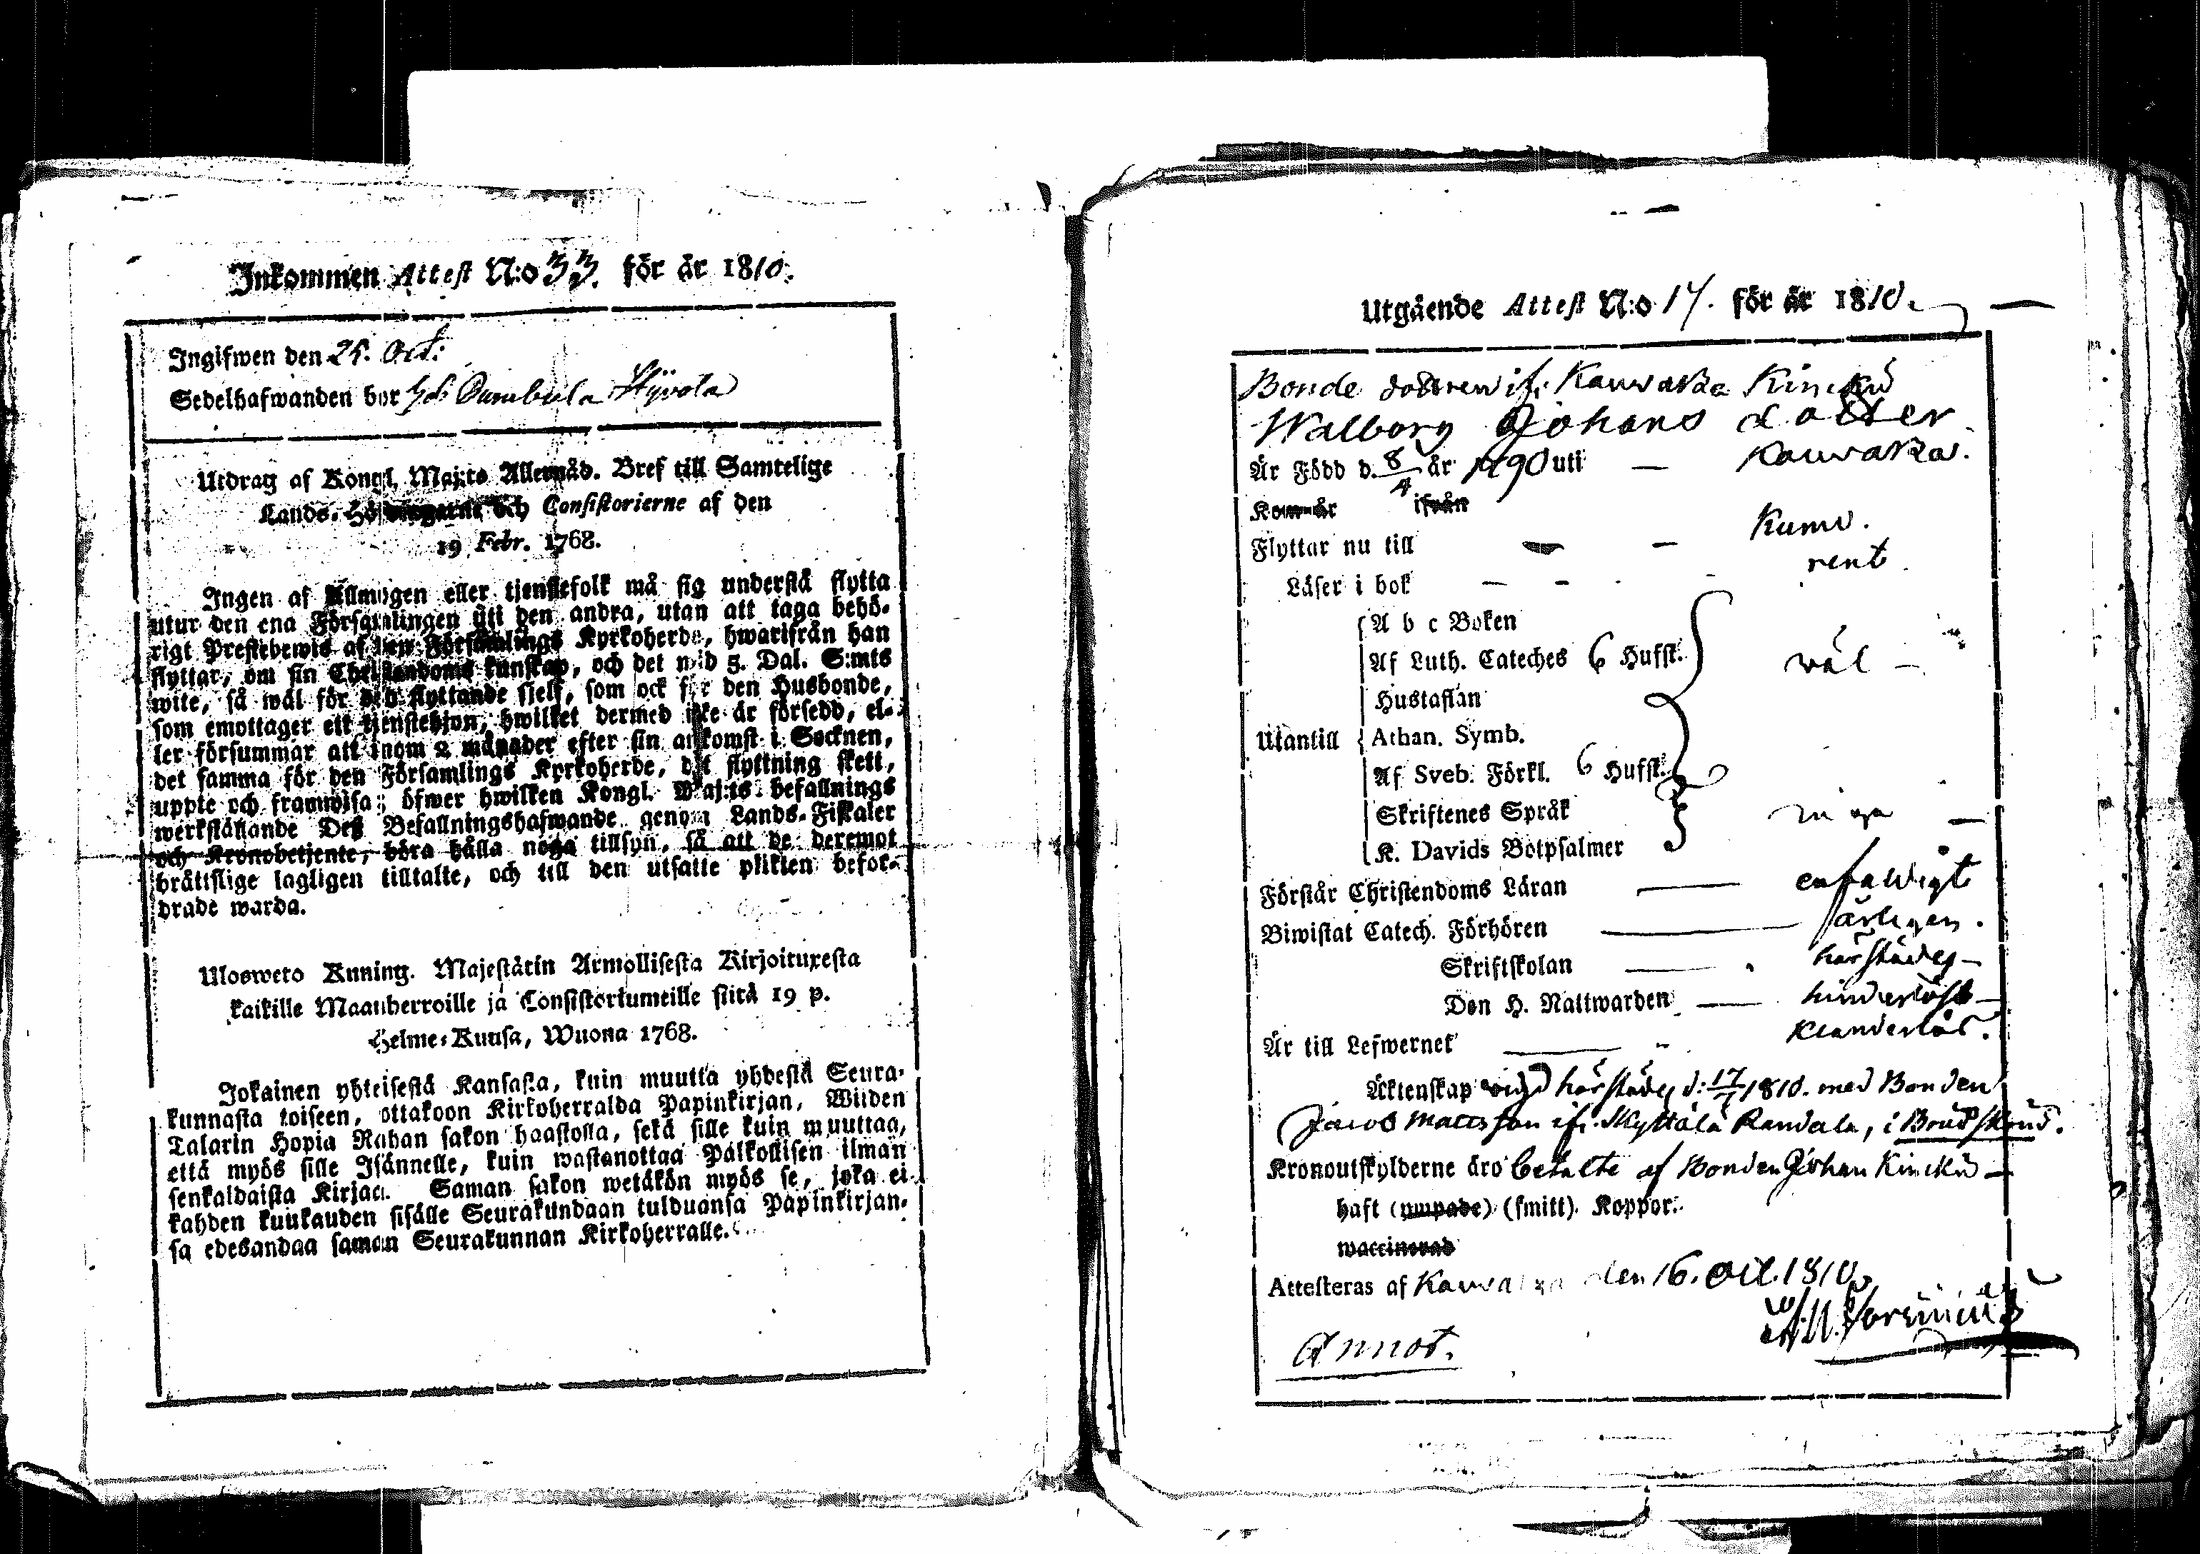 Inkommen Attest N:o 33. för år 1810.
Ingifwen den 25. Oct:
Sedelhafwanden bor
Utdrag af Kongl. Maj:ts Allernåd. Bref till Samtelige
Lands-Höfdingarne och Consistorierne af den
19 Febr. 1768.
Ingen af Allmogen eller tjenstefolk må sig understå flytta
utur den ena Församlingen uti den andra, utan att taga behö-
rigt Prestebewis af den Församlings Kyrkoherde, hwarifrån han
flyttar, om sin Christendoms kunskap, och det wid 5. Dal. S:mts
wite, så wäl för den flyttande sjelf, som ock för den Husbonde,
som emottager ett tjenstehjon, hwilket dermed icke är försedd, el-
ler försummar att inom 2 månader efter sin ankomst i Socknen,
det samma för den Församlings Kyrkoherde, dit flyttning skett,
uppte och framwisa; öfwer hwilken Kongl. Maj:ts befallnings
werkställande Deß Befallningshafwande genom Lands-Fiskaler
och Kronobetjente, böra hålla noga tillsyn, så att de deremot
bråttslige lagligen tilltalte, och till den utsatte plikten befor-
drade warda.
Ulosweto Kuning. Majestätin Armollisesta Kirjoituxesta
kaikille Maanherroille ja Consistoriumeille siitä 19 p.
Helme-Kuusa, Wuona 1768.
Jokainen yhteisestä Kansasta, kuin muutta yhdestä Seura-
kunnasta toiseen, ottakoon Kirkoherralda Papinkirjan, Wiiden
Talarin Hopia Rahan sakon haastolla, sekä sille kuin muuttaa,
että myös sille Isännelle, kuin wastanottaa Palkollisen ilman
senkaldaista Kirjaa. Saman sakon wetäkön myös se, joka ei
kahden kuukauden sisälle Seurakundaan tulduansa Papinkirjan-
sa edesandaa saman Seurakunnan Kirkoherralle.
Utgående Attest N:o 17. för år 1810.
Bonde dottren if: Kauvatza Kincku
Walborg Johans dotter
Är Född d. 8/4 år 1790 uti — Kauvatza.
Kom år ifrån
Flyttar nu till — Kumo.
Läser i bok - - rent
Utantill
A b c Boken
Af Luth. Cateches 6 Hufst. wäl —
Hustaflan
Athan. Symb.
Af Sveb. Förkl. 6 Hufst.
Skriftenes Språk
K. Davids Botpsalmer
Förstår Christendoms Läran — enfaldigt
Biwistat Catech. Förhören — årligen.
Skriftskolan — härstädes —
Den H. Nattwarden — hinderlöst —
Är till Lefwernet — klanderlös.
Äktenskap wigd härstädes d: 17/7 1810. med Bonden
Jacob Mattsson if: Kyttälä Randala, i
Kronoutskylderne äro betalte af Bonden Johan Kincku —
haft (ympade) (smitt). Koppor.
waccinerad
Attesteras af Kauvatza den 16. Oct. 1810.
Annot.